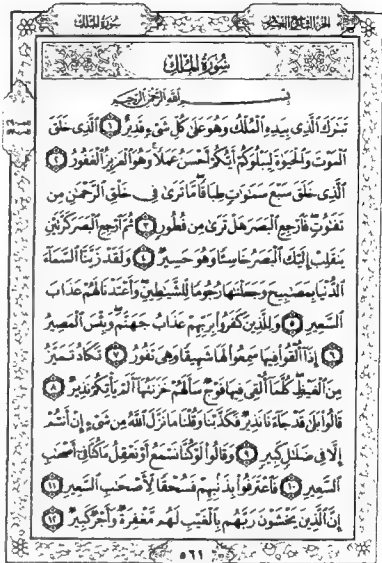 الجزء التاسع والعشرون
سورة الملك
سُورَةُ المُلْكِ
بِسْمِ اللَّهِ الرَّحْمَٰنِ الرَّحِيمِ
تَبَٰرَكَ ٱلَّذِى بِيَدِهِ ٱلْمُلْكُ وَهُوَ عَلَىٰ كُلِّ شَىْءٍ قَدِيرٌ ١ ٱلَّذِى خَلَقَ
ٱلْمَوْتَ وَٱلْحَيَوٰةَ لِيَبْلُوَكُمْ أَيُّكُمْ أَحْسَنُ عَمَلًا وَهُوَ ٱلْعَزِيزُ ٱلْغَفُورُ ٢
ٱلَّذِى خَلَقَ سَبْعَ سَمَٰوَٰتٍ طِبَاقًا مَّا تَرَىٰ فِى خَلْقِ ٱلرَّحْمَٰنِ مِن
تَفَٰوُتٍ فَٱرْجِعِ ٱلْبَصَرَ هَلْ تَرَىٰ مِن فُطُورٍ ٣ ثُمَّ ٱرْجِعِ ٱلْبَصَرَ كَرَّتَيْنِ
يَنقَلِبْ إِلَيْكَ ٱلْبَصَرُ خَاسِئًا وَهُوَ حَسِيرٌ ٤ وَلَقَدْ زَيَّنَّا ٱلسَّمَآءَ
ٱلدُّنْيَا بِمَصَٰبِيحَ وَجَعَلْنَٰهَا رُجُومًا لِّلشَّيَٰطِينِ وَأَعْتَدْنَا لَهُمْ عَذَابَ
ٱلسَّعِيرِ ٥ وَلِلَّذِينَ كَفَرُوا۟ بِرَبِّهِمْ عَذَابُ جَهَنَّمَ وَبِئْسَ ٱلْمَصِيرُ
٦ إِذَآ أُلْقُوا۟ فِيهَا سَمِعُوا۟ لَهَا شَهِيقًا وَهِىَ تَفُورُ ٧ تَكَادُ تَمَيَّزُ
مِنَ ٱلْغَيْظِ كُلَّمَآ أُلْقِىَ فِيهَا فَوْجٌ سَأَلَهُمْ خَزَنَتُهَآ أَلَمْ يَأْتِكُمْ نَذِيرٌ ٨
قَالُوا۟ بَلَىٰ قَدْ جَآءَنَا نَذِيرٌ فَكَذَّبْنَا وَقُلْنَا مَا نَزَّلَ ٱللَّهُ مِن شَىْءٍ إِنْ أَنتُمْ
إِلَّا فِى ضَلَٰلٍ كَبِيرٍ ٩ وَقَالُوا۟ لَوْ كُنَّا نَسْمَعُ أَوْ نَعْقِلُ مَا كُنَّا فِىٓ أَصْحَٰبِ
ٱلسَّعِيرِ ١٠ فَٱعْتَرَفُوا۟ بِذَنۢبِهِمْ فَسُحْقًا لِّأَصْحَٰبِ ٱلسَّعِيرِ ١١
إِنَّ ٱلَّذِينَ يَخْشَوْنَ رَبَّهُم بِٱلْغَيْبِ لَهُم مَّغْفِرَةٌ وَأَجْرٌ كَبِيرٌ ١٢
٥٦١